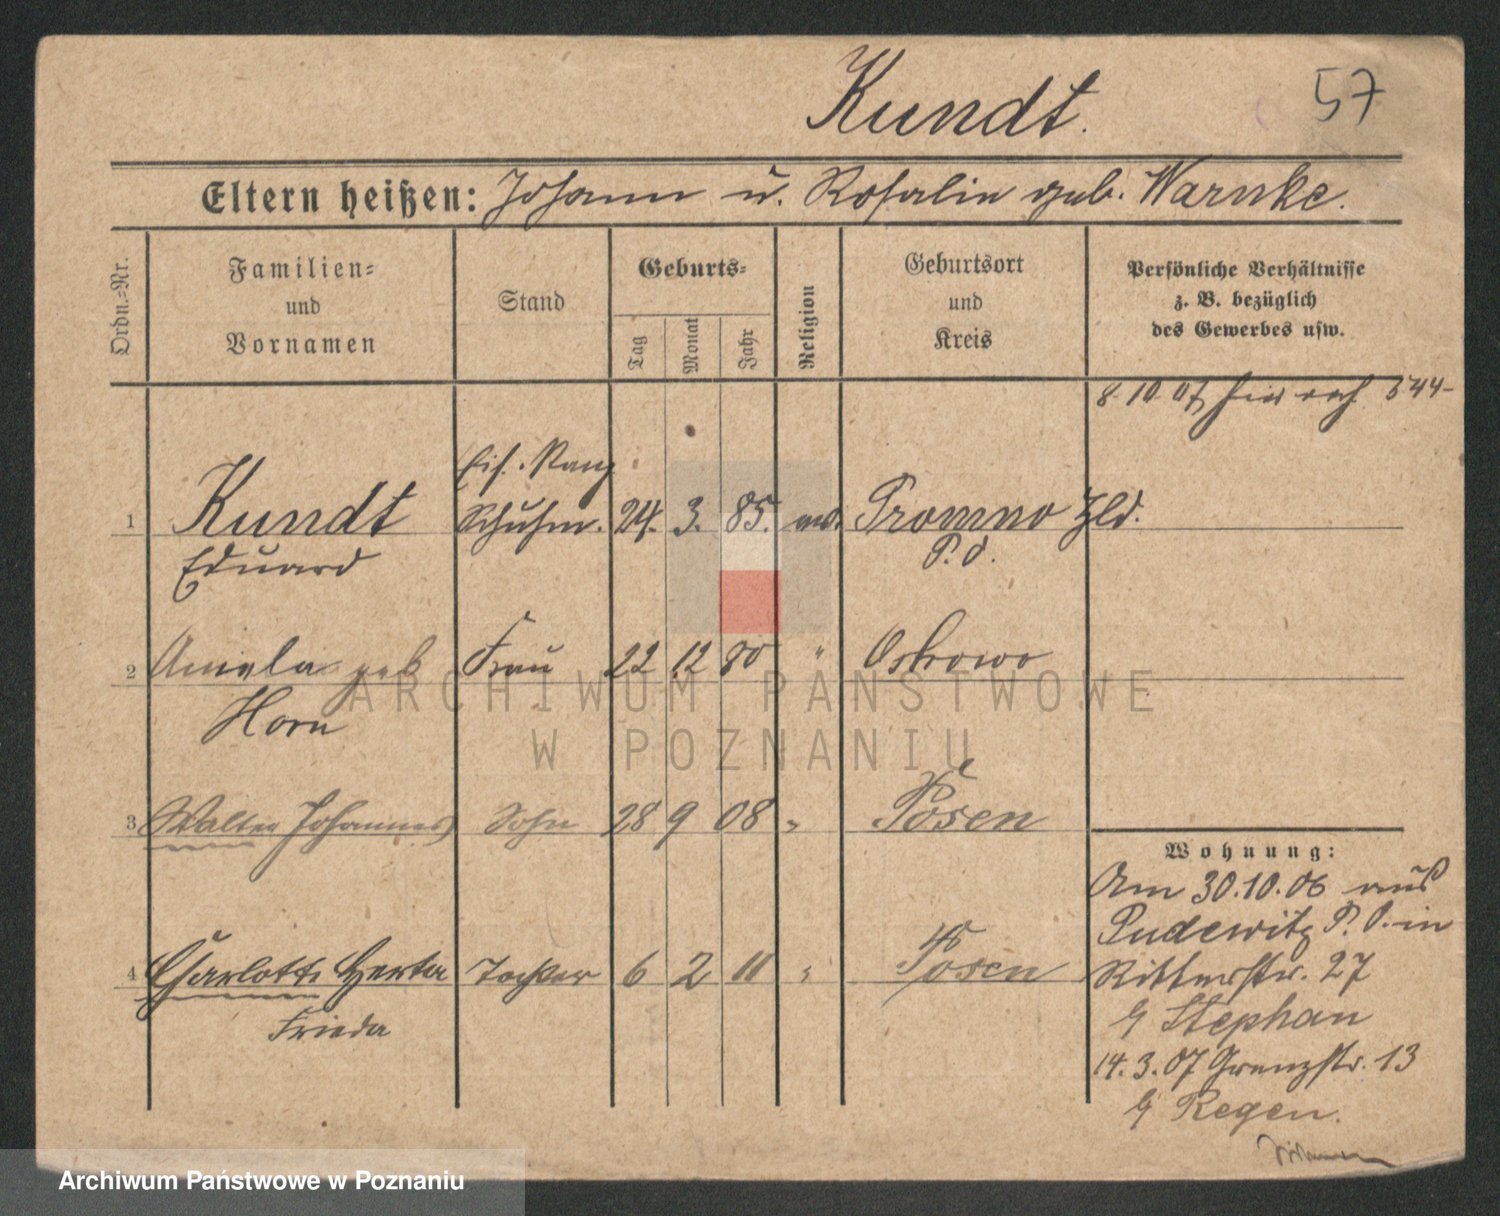 Kundt.
57
Eltern heißen: Johann u. Rosalin geb. Warnke.
Ordn.=Nr.
Familien=
und
Vornamen
Stand
Geburts=
Tag
Monat
Jahr
Religion
Geburtsort
und
Kreis
Persönliche Verhältnisse
z. B. bezüglich
des Gewerbes usw.
8.10.07
1
Kundt Schuhm. 24. 3. 85. Promno
Eduard P. O.
2 geb Frau 22 12 80 "
Horn
3 Walter Johannes Sohn 28 9 08 " Posen
4 Charlotte Herta Tochter 6 2 11 " Posen
Frieda
Wohnung:
Am 30.10.06 aus
Pudewitz P. O. in
Ritterstr. 27
Stephan
14.3.07 Grenzstr. 13
Regen.
ARCHIWUM PAŃSTWOWE
W POZNANIU
Archiwum Państwowe w Poznaniu